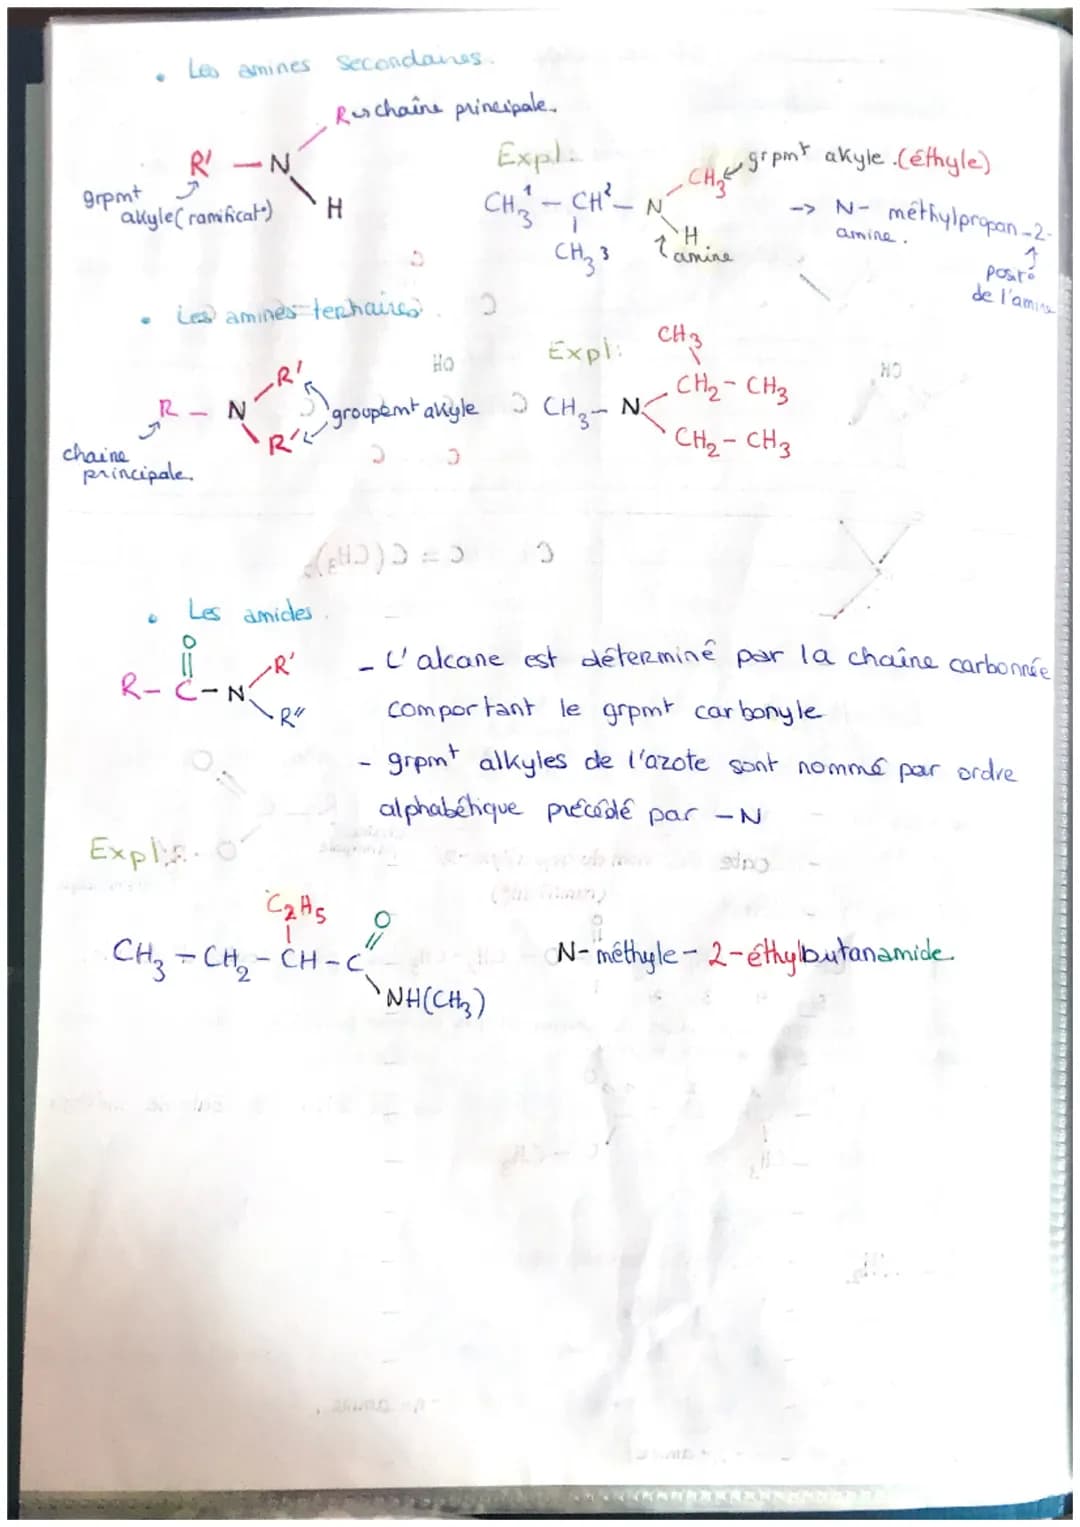 • Les amines secondaires.
R ↔ chaîne principale.
R' — N
H
grpmt
akyle (ramificat°)
Expl:
CH₃¹ — CH² — N
CH₃ 3
CH₃
H
amine
grpmt akyle.(éthyle)
-> N- méthylpropan-2-
amine.
posit°
de l'amine
• Les amines tertiaires.
R — N
R'
R'
groupemt akyle
chaine
principale.
Expl:
CH₃
CH₂ - CH₃
CH₃ - N
CH₂ - CH₃
• Les amides.
O
R - C - N
R'
R"
- L'alcane est déterminé par la chaîne carbonnée
comportant le grpmt carbonyle
- grpmt alkyles de l'azote sont nommé par ordre
alphabétique précédé par - N
Expl:
C₂H₅
O
CH₃ - CH₂ - CH - C
NH(CH₃)
N- méthyle - 2-éthylbutanamide.